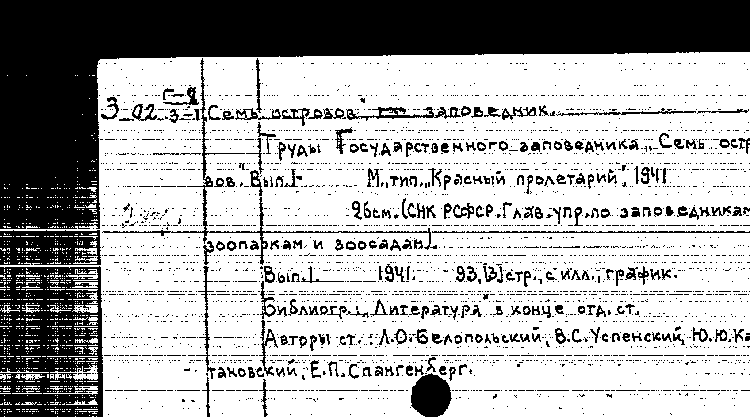 Г-8
З-02 З-1 Семь островов" гос. заповедник.
Труды Государственного заповедника „Семь остр
вов." Вып.1- М., тип. „Красный пролетарий", 1941
26см. (СНК РСФСР. Глав. упр. по заповедникам
зоопаркам и зоосадам).
Вып.1. 1941. 93,[3] стр., с илл., график.
Библиогр.: „Литература" в конце отд. ст.
Авторы ст.: Л.О. Белопольский, В.С. Успенский, Ю.Ю. Ка
тановский, Е.П. Спангенберг.